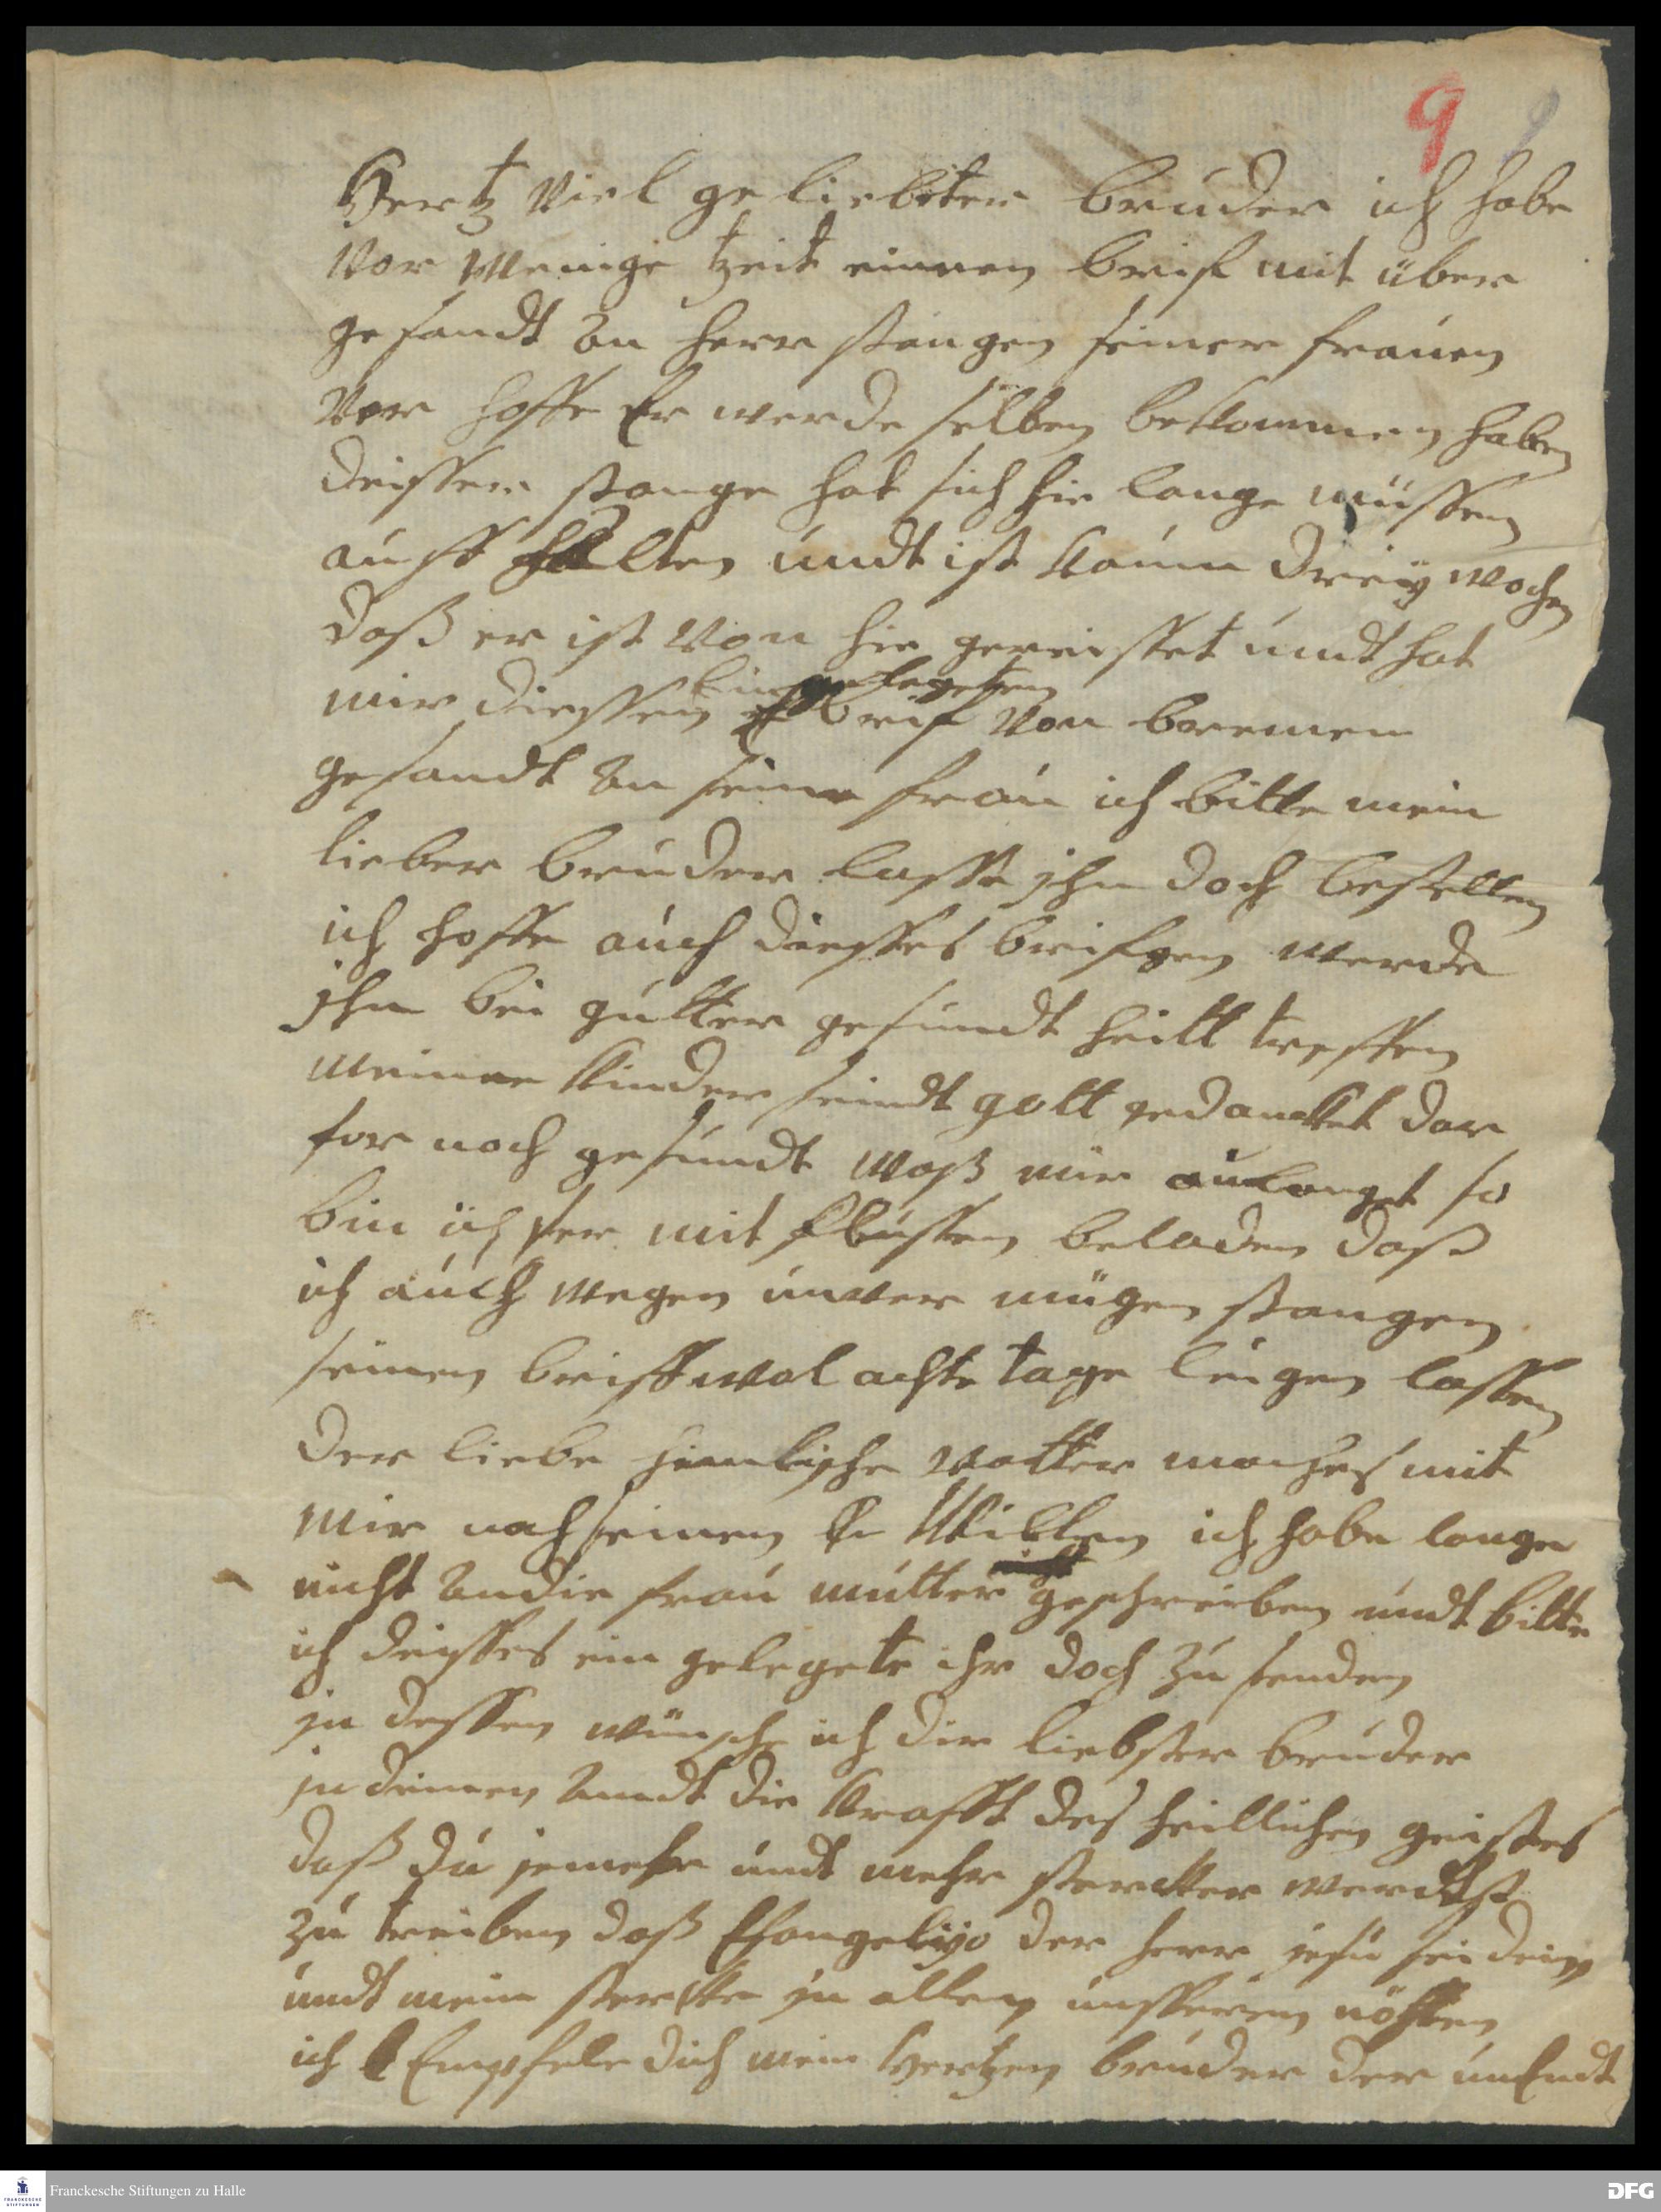 9 9
Hertz viel geliebter bruder ich habe
vor wenige tzeit einnen brif mit über
gesandt an herr stangen seiner frauen
vor hoffe Er werde selben bekommen haben
deisser stange hat sich hie lange müssen
auff halten undt ist kaum dreiy wochen
daß er ist von hie gereisset undt hat
ein gelegeten
mir diessen brif von bremen
gesandt an seine frau ich bitte mein
lieber bruder lasse ihn doch bestellen
ich hoffe auch diesses breifgen werde
ihn bei gutter gesundt heitt treffen
meine kinder seindt gott gedancket dar
for noch gesundt waß mir anlanget so
bin ich ser mit flüssen beladen daß
ich auch wegen unver mügen stangen
seinen breiff wol achte tage leigen lassen
der liebe himlische vatter maches mit
mir nach seinen willen ich habe lange
nicht an die frau mutter geschreiben undt bitte
ich deisses ein gelegete ihr doch zu senden
in dessen wünsche ich dir liebster bruder
in deinen amdt die krafft des heillichen geistes
daß du jemehr undt mehr stercker werdest
zu treiben daß Efangeliyo der herr jesu sei dein
undt mein stercke in allen unsseren nöhten
ich Empfele dich mein hertzen bruder der unEndt
Franckesche Stiftungen zu Halle
FRANCKESCHE STIFTUNGEN
DFG